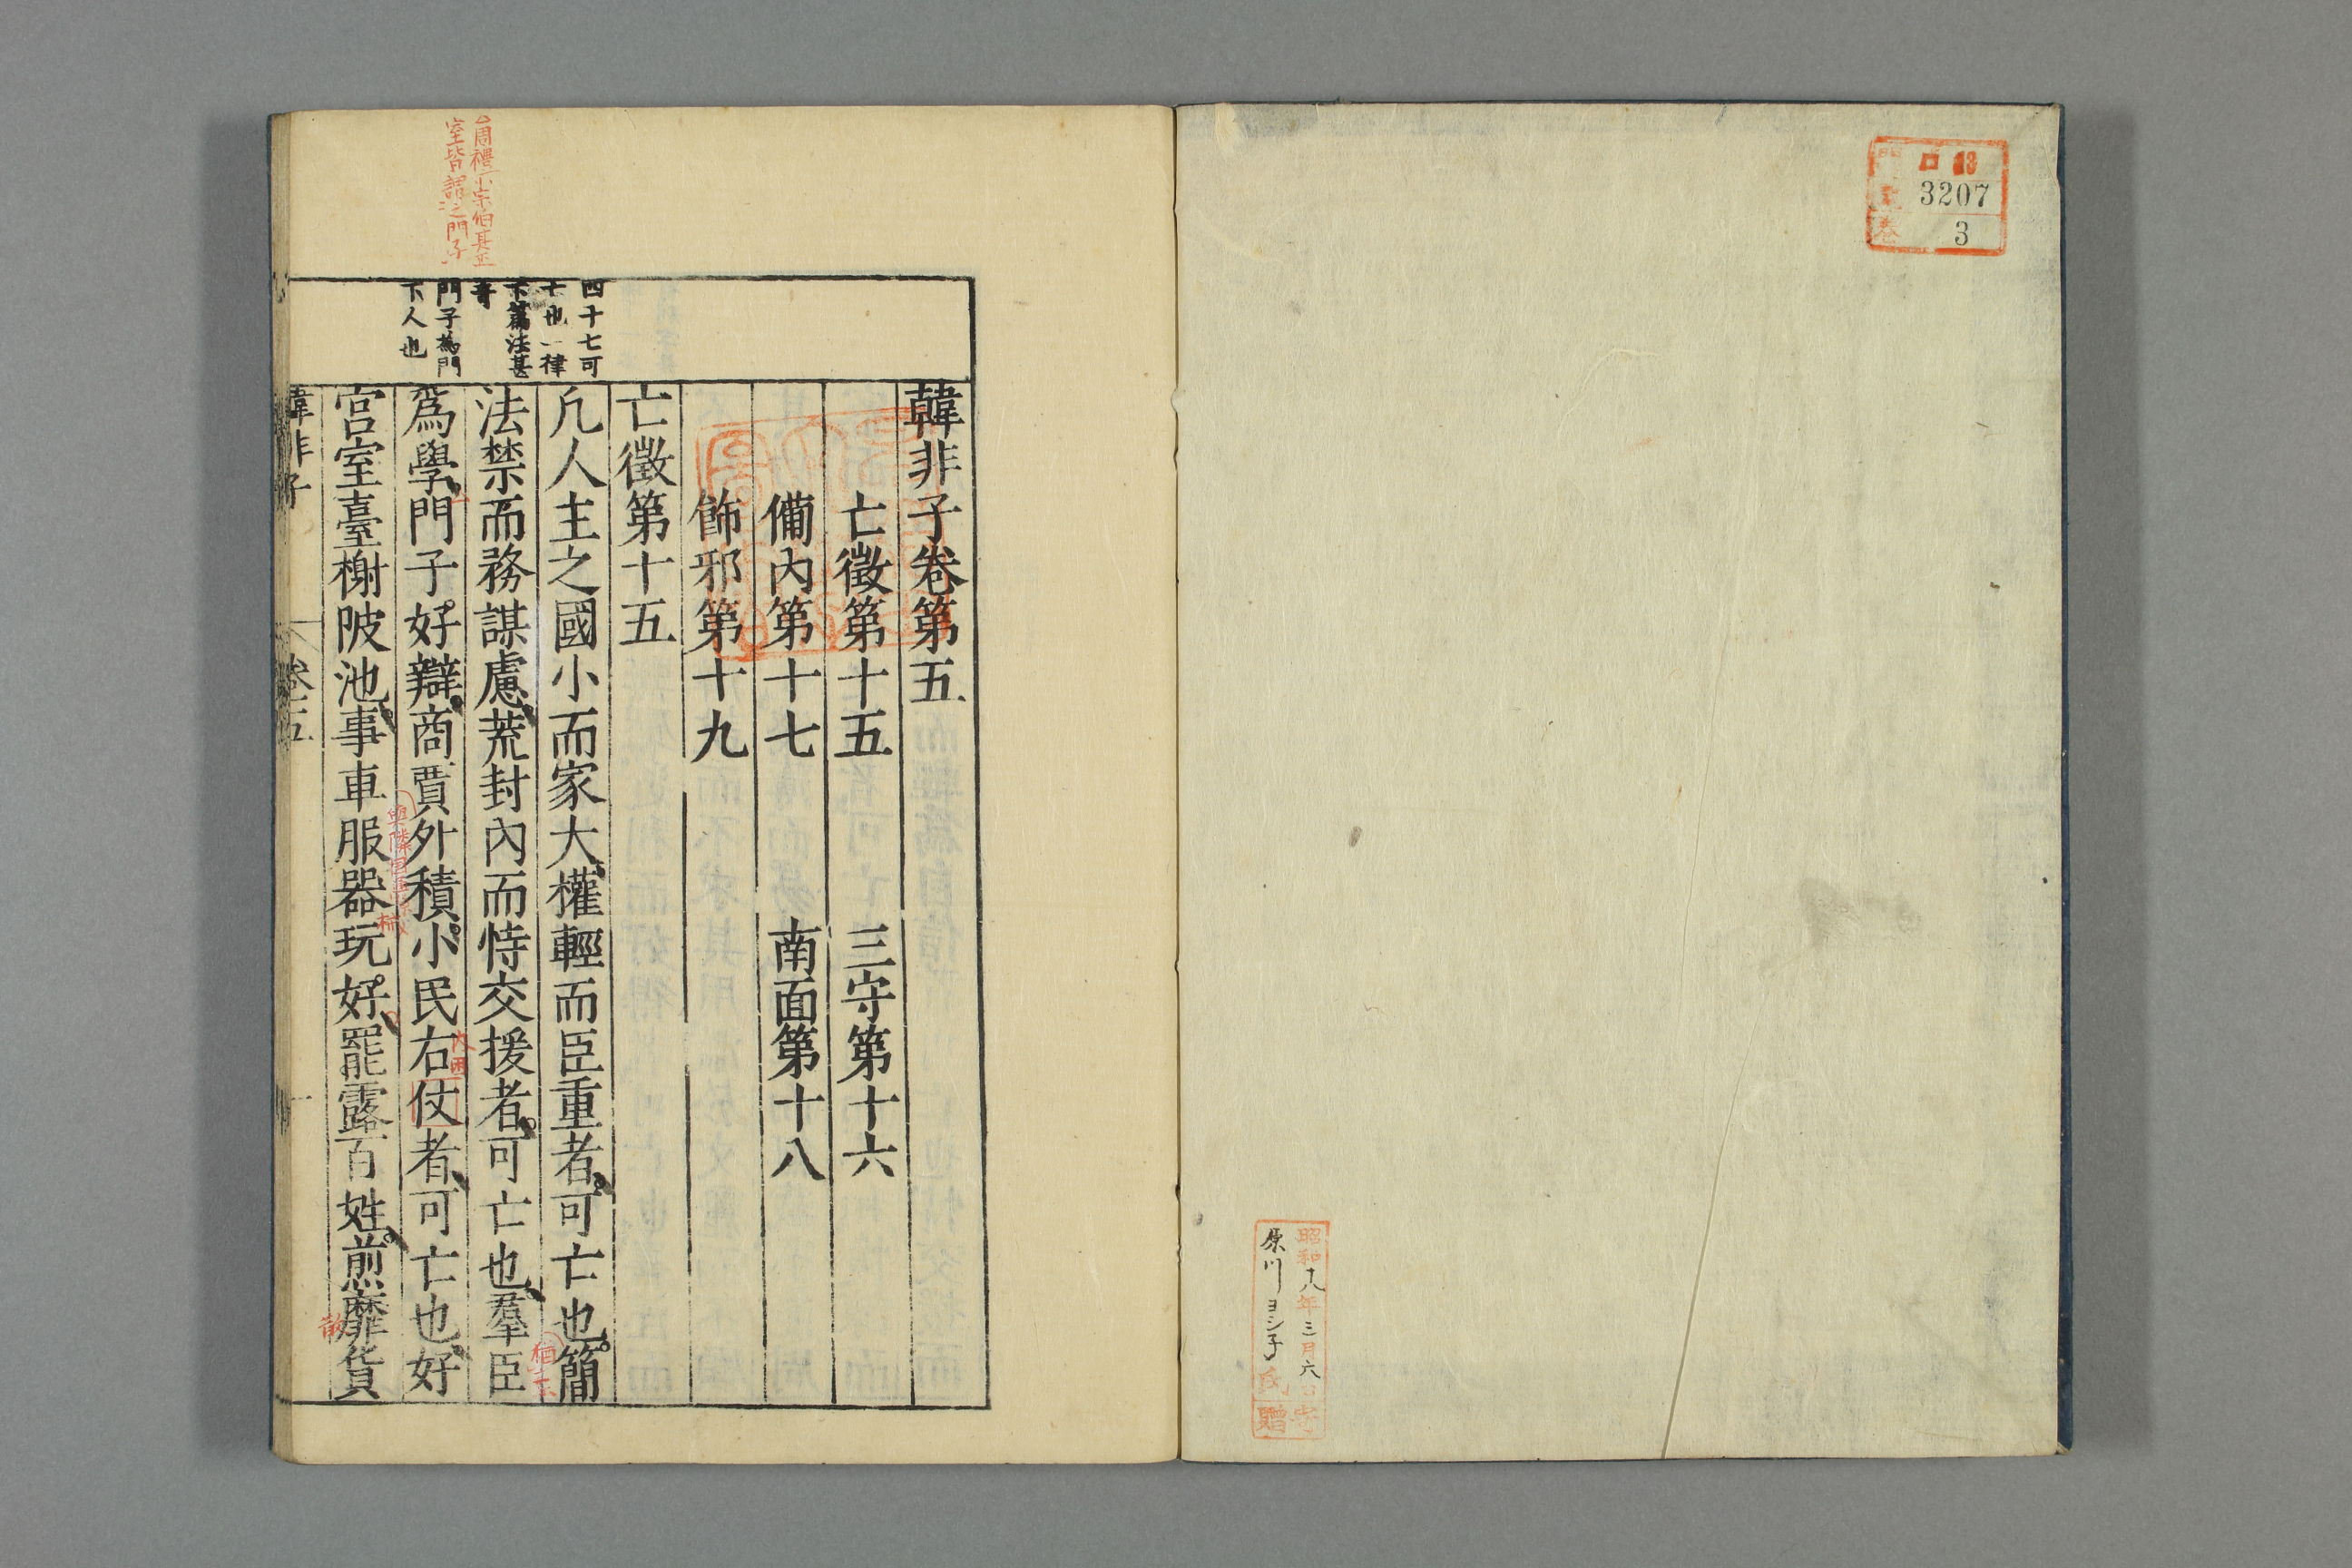 ロ 13
3207
3
門
卷
昭和十八年三月六日
原川ヨシ子氏贈
韓非子卷第五
亡徵第十五　三守第十六
備內第十七　南面第十八
飾邪第十九
亡徵第十五
凡人主之國小而家大權輕而臣重者可亡也簡
法禁而務謀慮荒封內而恃交援者可亡也羣臣
爲學門子好辯商賈外積小民右仗者可亡也好
宮室臺榭陂池事車服器玩好罷露百姓煎靡貨
四十七可
亡也一律
下篇法甚
奇
門子爲門
下人也
周禮小宗伯其正
室皆謂之門子
內困
散
韓非子　卷五　一